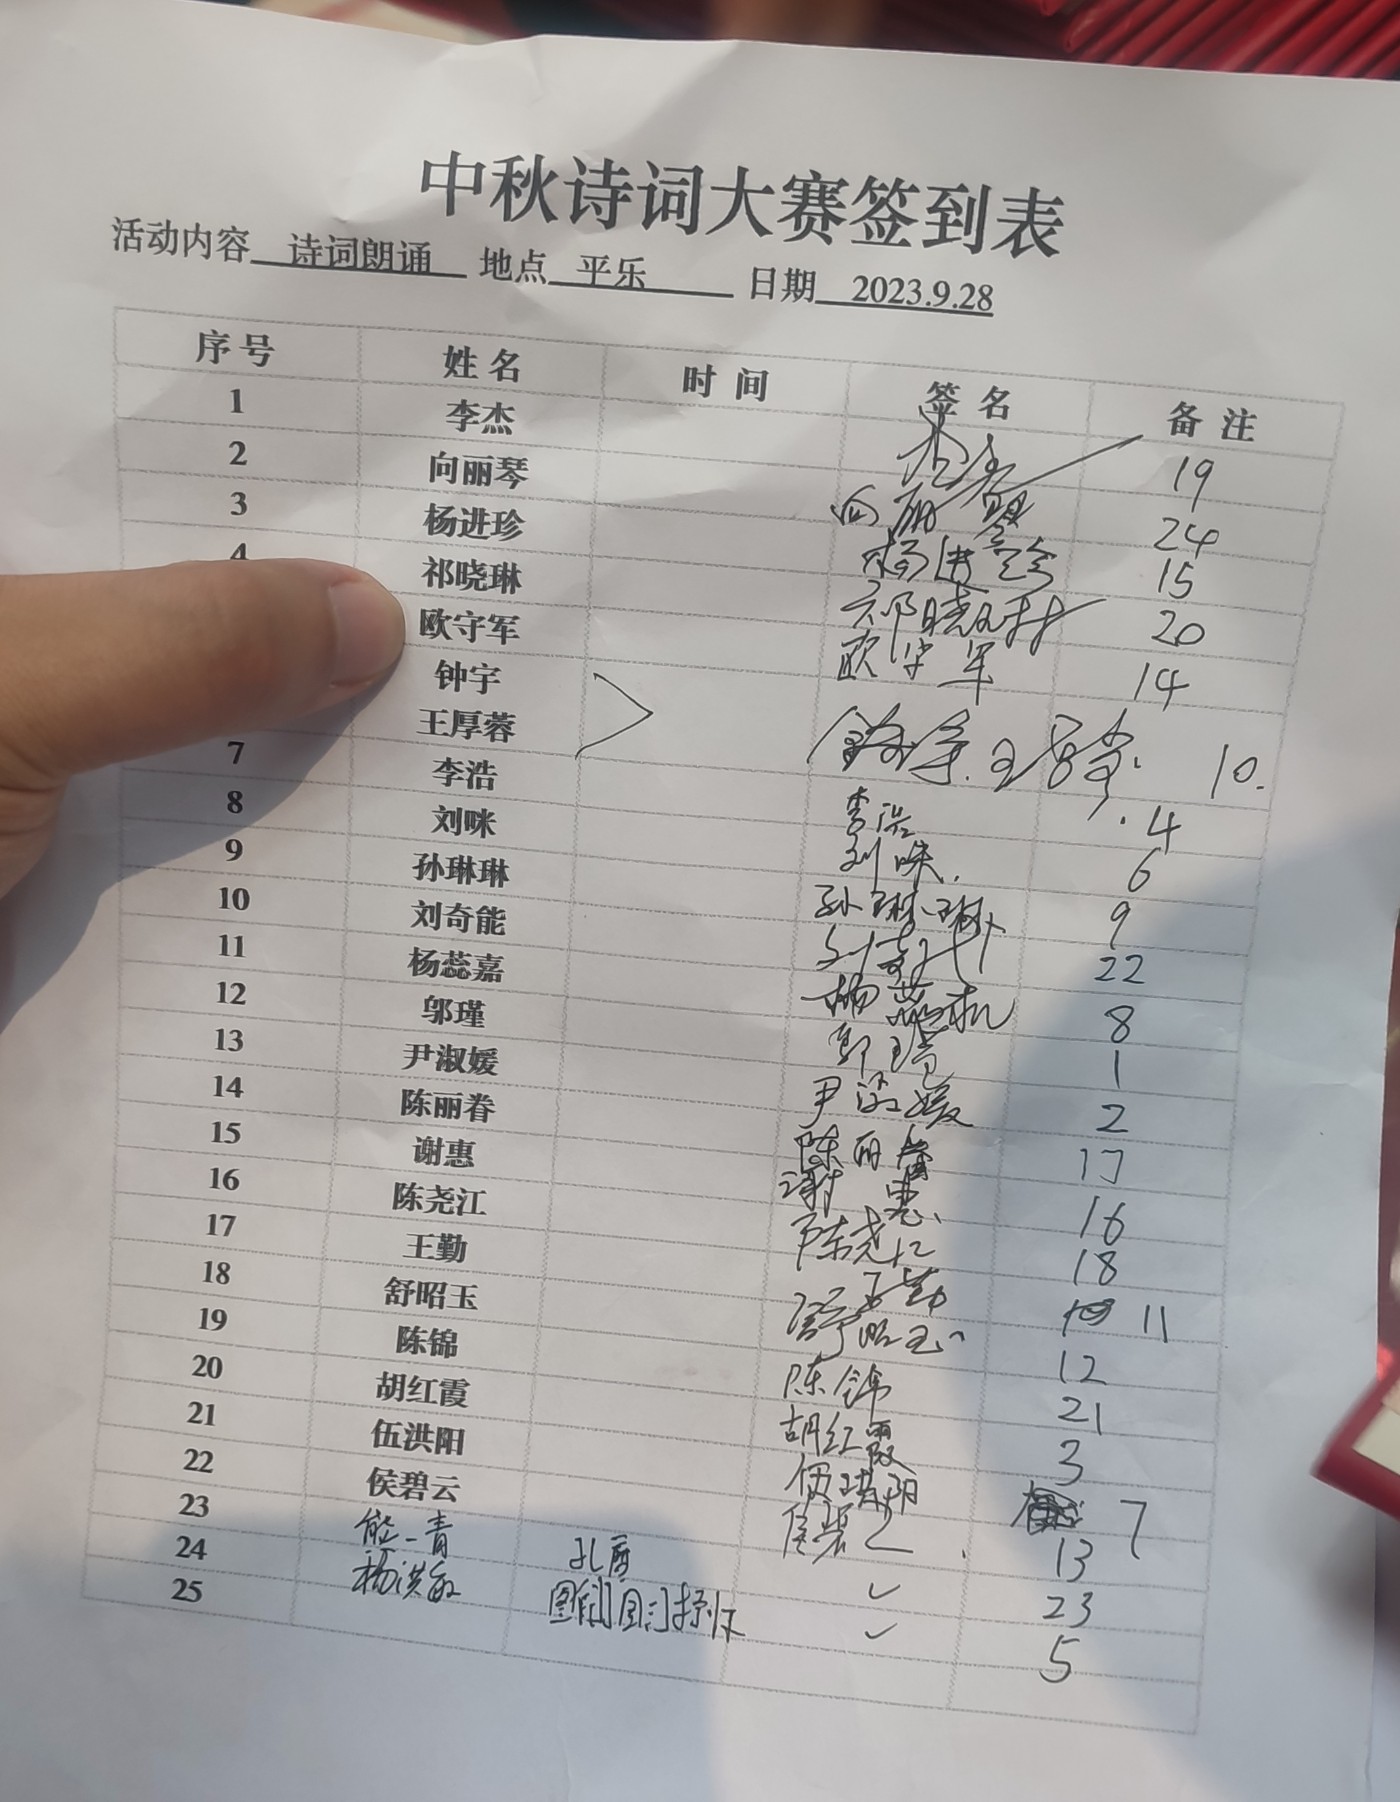 中秋诗词大赛签到表
活动内容 诗词朗诵 地点 平乐 日期 2023.9.28
序号 姓名 时间 签名 备注
1 李杰 19
2 向丽琴 向丽琴 24
3 杨进珍 杨进珍 15
4 祁晓琳 祁晓琳 20
欧守军 欧守军 14
钟宇
王厚蓉 10.
7 李浩 李浩 4
8 刘咪 刘咪 6
9 孙琳琳 孙琳琳 9
10 刘奇能 刘奇能 22
11 杨蕊嘉 杨蕊 8
12 邬瑾 邬瑾 1
13 尹淑媛 尹淑媛 2
14 陈丽眷 陈丽眷 17
15 谢惠 谢惠 16
16 陈尧江 陈尧江 18
17 王勤 王勤 11
18 舒昭玉 舒昭玉 12
19 陈锦 陈锦 21
20 胡红霞 胡红霞 3
21 伍洪阳 伍洪阳 7
22 侯碧云 侯碧云 13
23 熊一青 23
24 杨洪 5
25